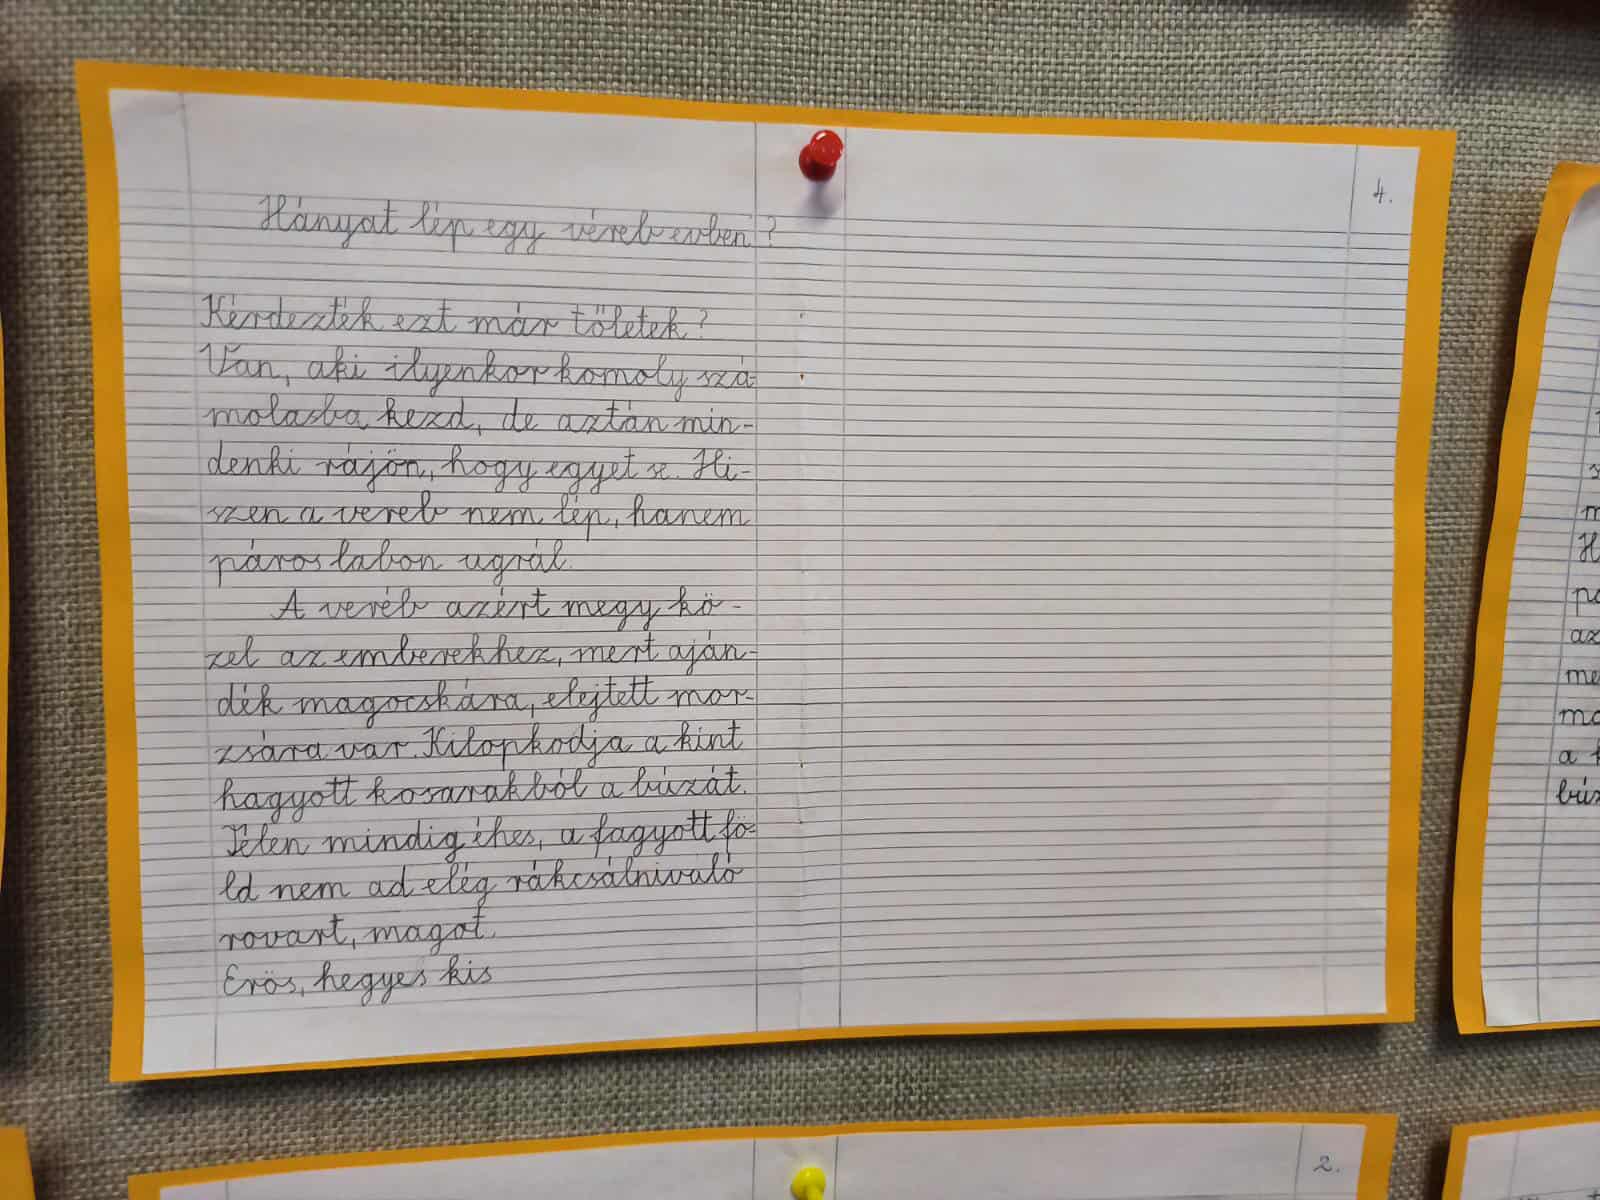 4.
Hányat lép egy véreb evben?
Kérdezték ezt már tőletek?
Van, aki ilyenkor komoly szá-
molasba kezd, de aztán min-
denki rájön, hogy egyet se. Hi-
szen a vereb nem lép, hanem
páros labon ugrál.
A veréb azért megy kö-
zel az emberekhez, mert aján-
dék magocskára, elejtett mor-
zsára var. Kilopkodja a kint
hagyott kosarakból a búzát.
Télen mindig éhes, a fagyott fö-
ld nem ad elég rákcsálnivaló
rovart, magot.
Erös, hegyes kis
2.
m
H
po
az
me
mo
a k
búz